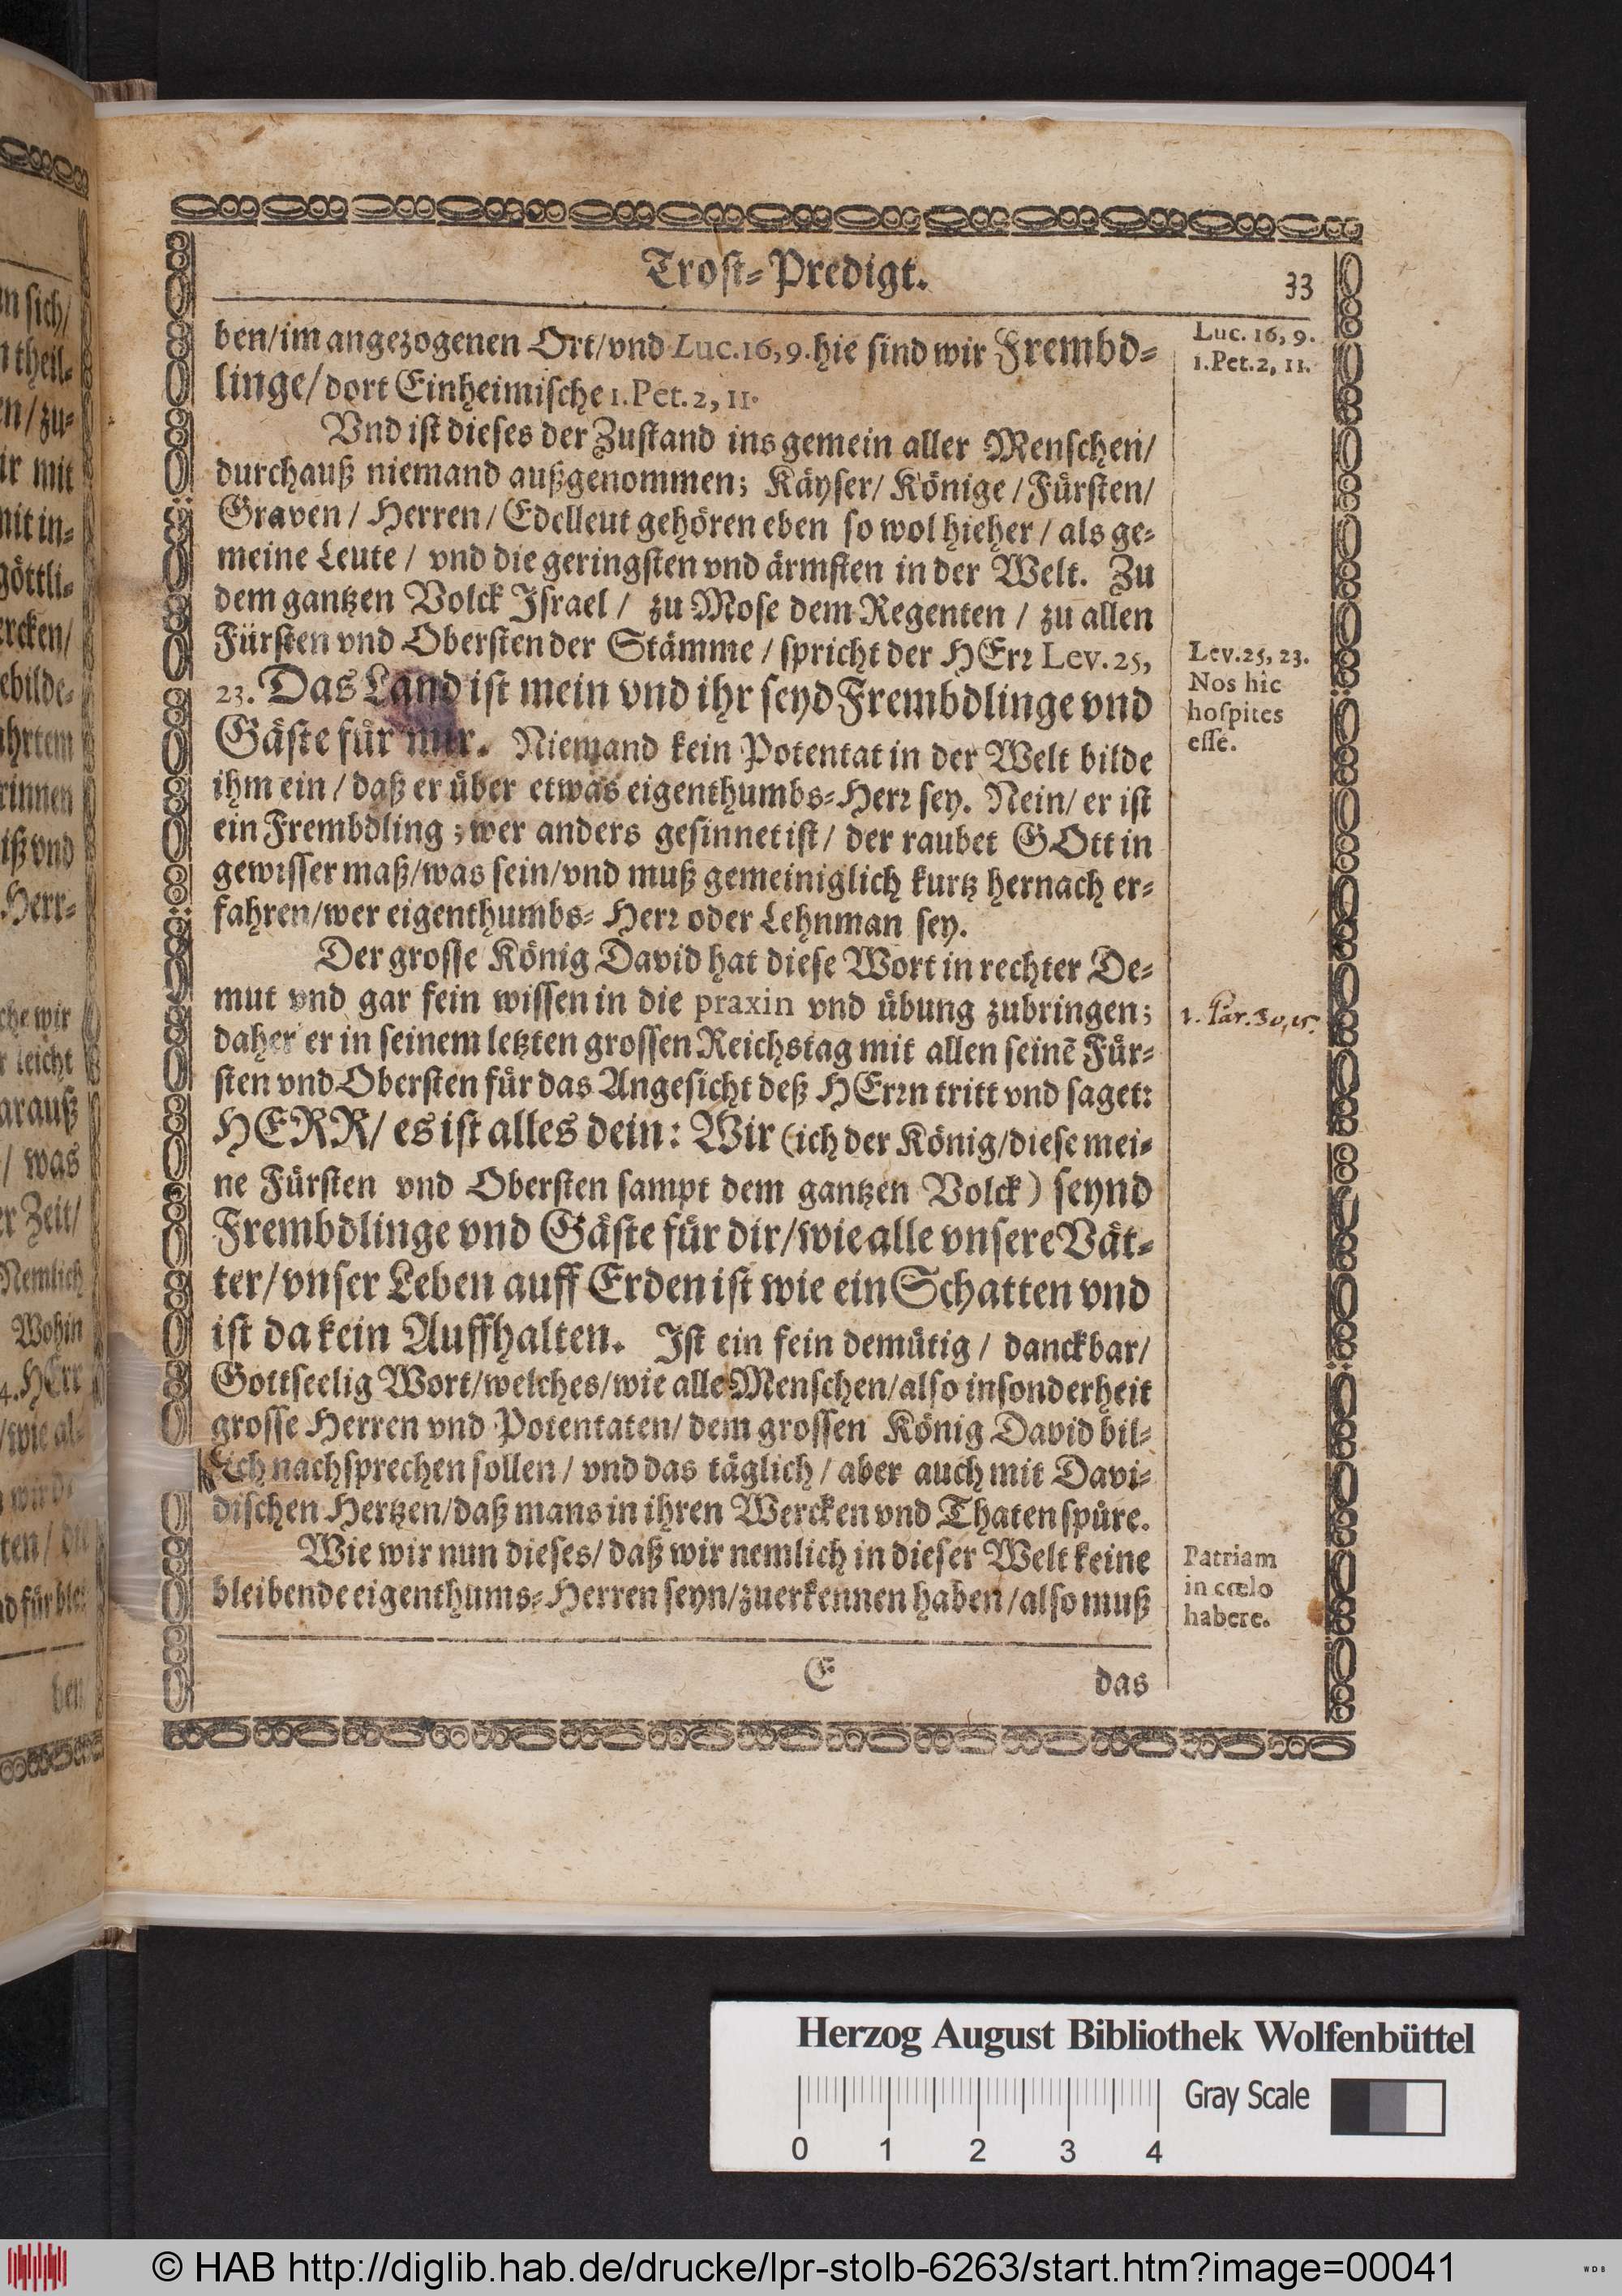 Trost-Predigt.
33
ben/im angezogenen Ort/vnd Luc.16,9.hie sind wir Frembd-
linge/dort Einheimische 1.Pet.2,11.
Vnd ist dieses der Zustand ins gemein aller Menschen/
durchauß niemand außgenommen; Käyser/Könige/Fürsten/
Graven/Herren/Edelleut gehören eben so wol hieher/als ge-
meine Leute/vnd die geringsten vnd ärmsten in der Welt. Zu
dem gantzen Volck Israel/zu Mose dem Regenten/zu allen
Fürsten vnd Obersten der Stämme/spricht der HErr Lev.25,
23. Das Land ist mein vnd ihr seyd Frembdlinge vnd
Gäste für mir. Niemand kein Potentat in der Welt bilde
ihm ein/daß er über etwas eigenthumbs-Herr sey. Nein/er ist
ein Frembdling;wer anders gesinnet ist/der raubet GOtt in
gewisser maß/was sein/vnd muß gemeiniglich kurtz hernach er-
fahren/wer eigenthumbs-Herr oder Lehnman sey.
Der grosse König David hat diese Wort in rechter De-
mut vnd gar fein wissen in die praxin vnd übung zubringen;
daher er in seinem letzten grossen Reichstag mit allen seinē Für-
sten vnd Obersten für das Angesicht deß HErrn tritt vnd saget:
HERR/es ist alles dein: Wir (ich der König/diese mei-
ne Fürsten vnd Obersten sampt dem gantzen Volck) seynd
Frembdlinge vnd Gäste für dir/wie alle vnsere Vät-
ter/vnser Leben auff Erden ist wie ein Schatten vnd
ist da kein Auffhalten. Ist ein fein demütig/danckbar/
Gottseelig Wort/welches/wie alle Menschen/also insonderheit
grosse Herren vnd Potentaten/dem grossen König David bil-
lich nachsprechen sollen/vnd das täglich/aber auch mit Davi-
dischen Hertzen/daß mans in ihren Wercken vnd Thaten spüre.
Wie wir nun dieses/daß wir nemlich in dieser Welt keine
bleibende eigenthums-Herren seyn/zuerkennen haben/also muß
E
das
Luc. 16, 9.
1.Pet.2, 11.
Lev.25, 23.
Nos hîc
hospites
esse.
1. Par. 30,15.
Patriam
in cœlo
habere.
n sich/
theil-
n/zu-
ir mit
nit in-
göttli-
rcken/
ebilde-
ahrtem
rinnen
iß vnd
Herr-
che wir
leicht
arauß
/ was
er Zeit/
Nemlich
Wohin
4.HErr
/wie al-
ten/ die
ben
Herzog August Bibliothek Wolfenbüttel
Gray Scale
0 1 2 3 4
© HAB http://diglib.hab.de/drucke/lpr-stolb-6263/start.htm?image=00041
WDB